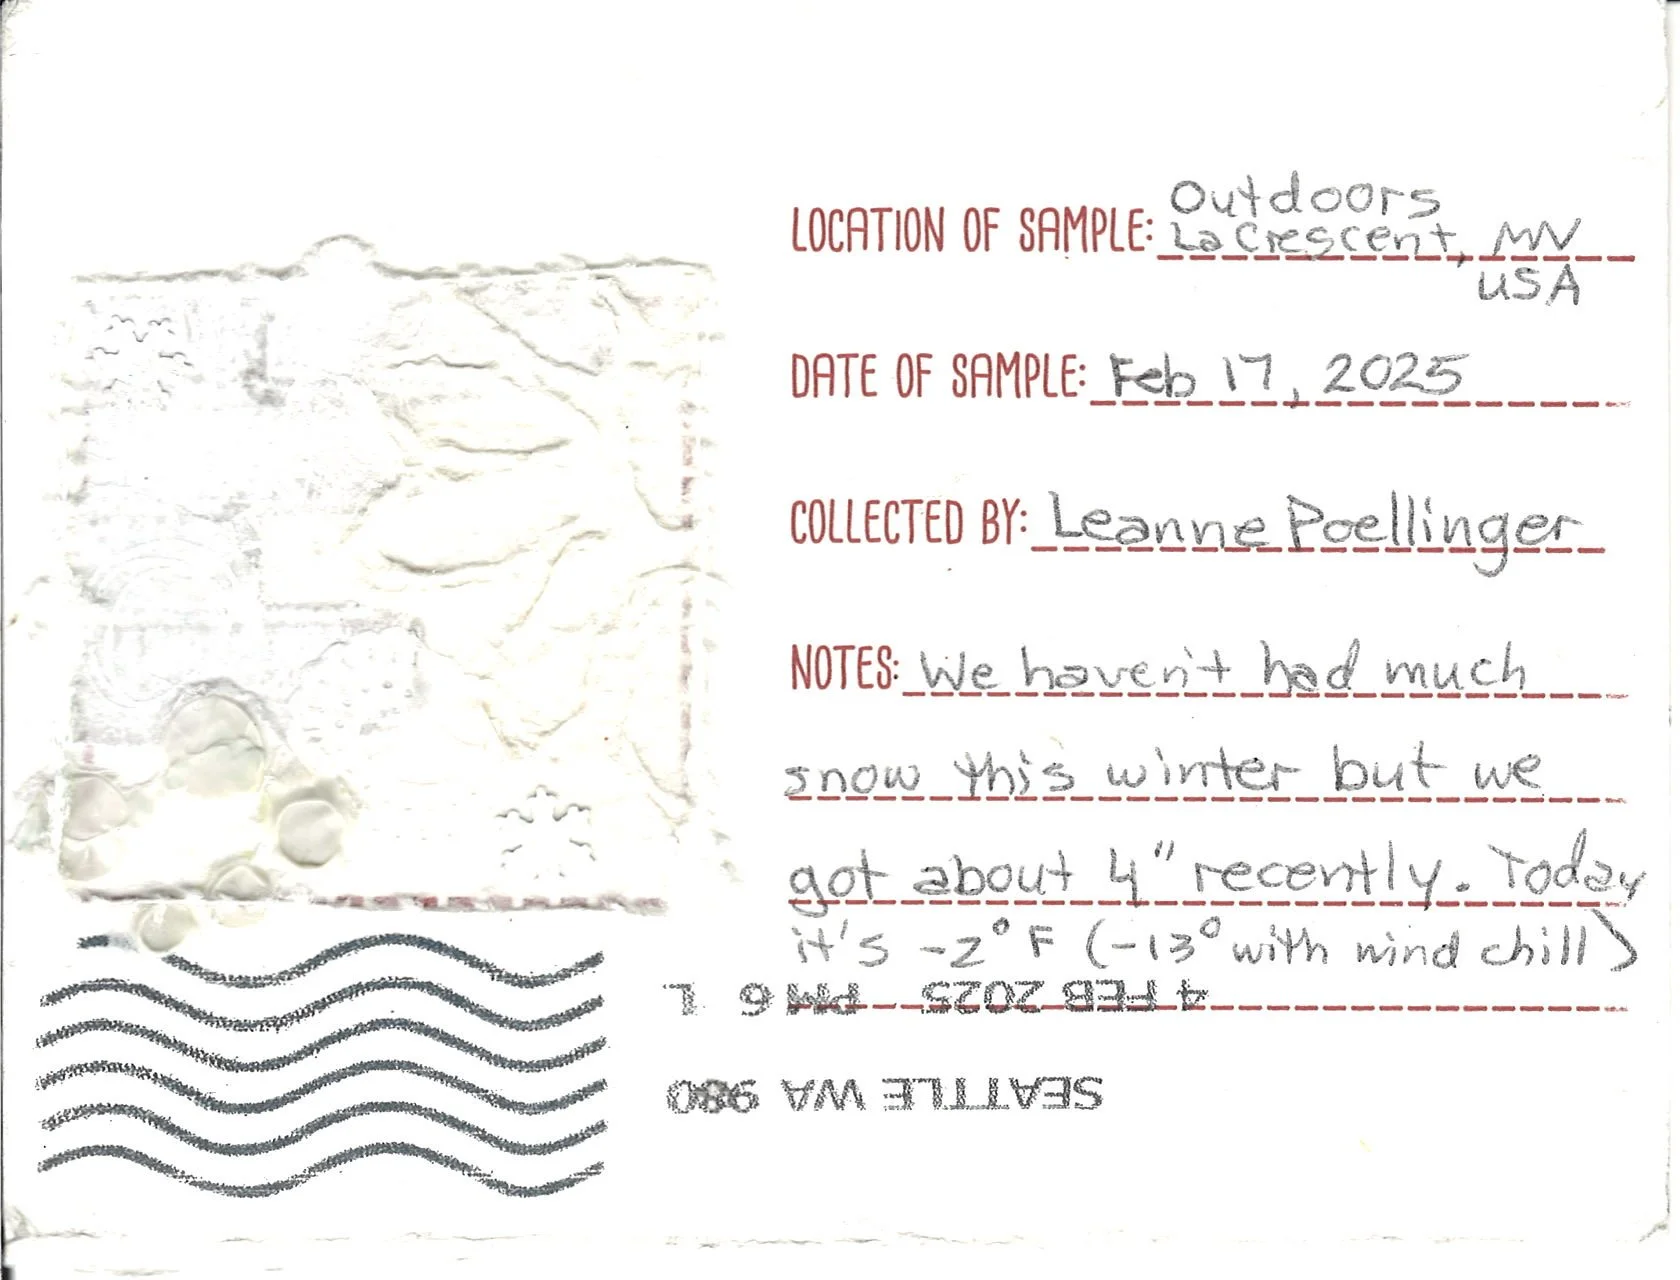 LOCATION OF SAMPLE: Outdoors
La Crescent, MN
USA
DATE OF SAMPLE: Feb 17, 2025
COLLECTED BY: Leanne Poellinger
NOTES: We haven't had much
snow this winter but we
got about 4" recently. Today
it's -2° F (-13° with wind chill)
SEATTLE WA 980
4 FEB 2025 PM 6 L